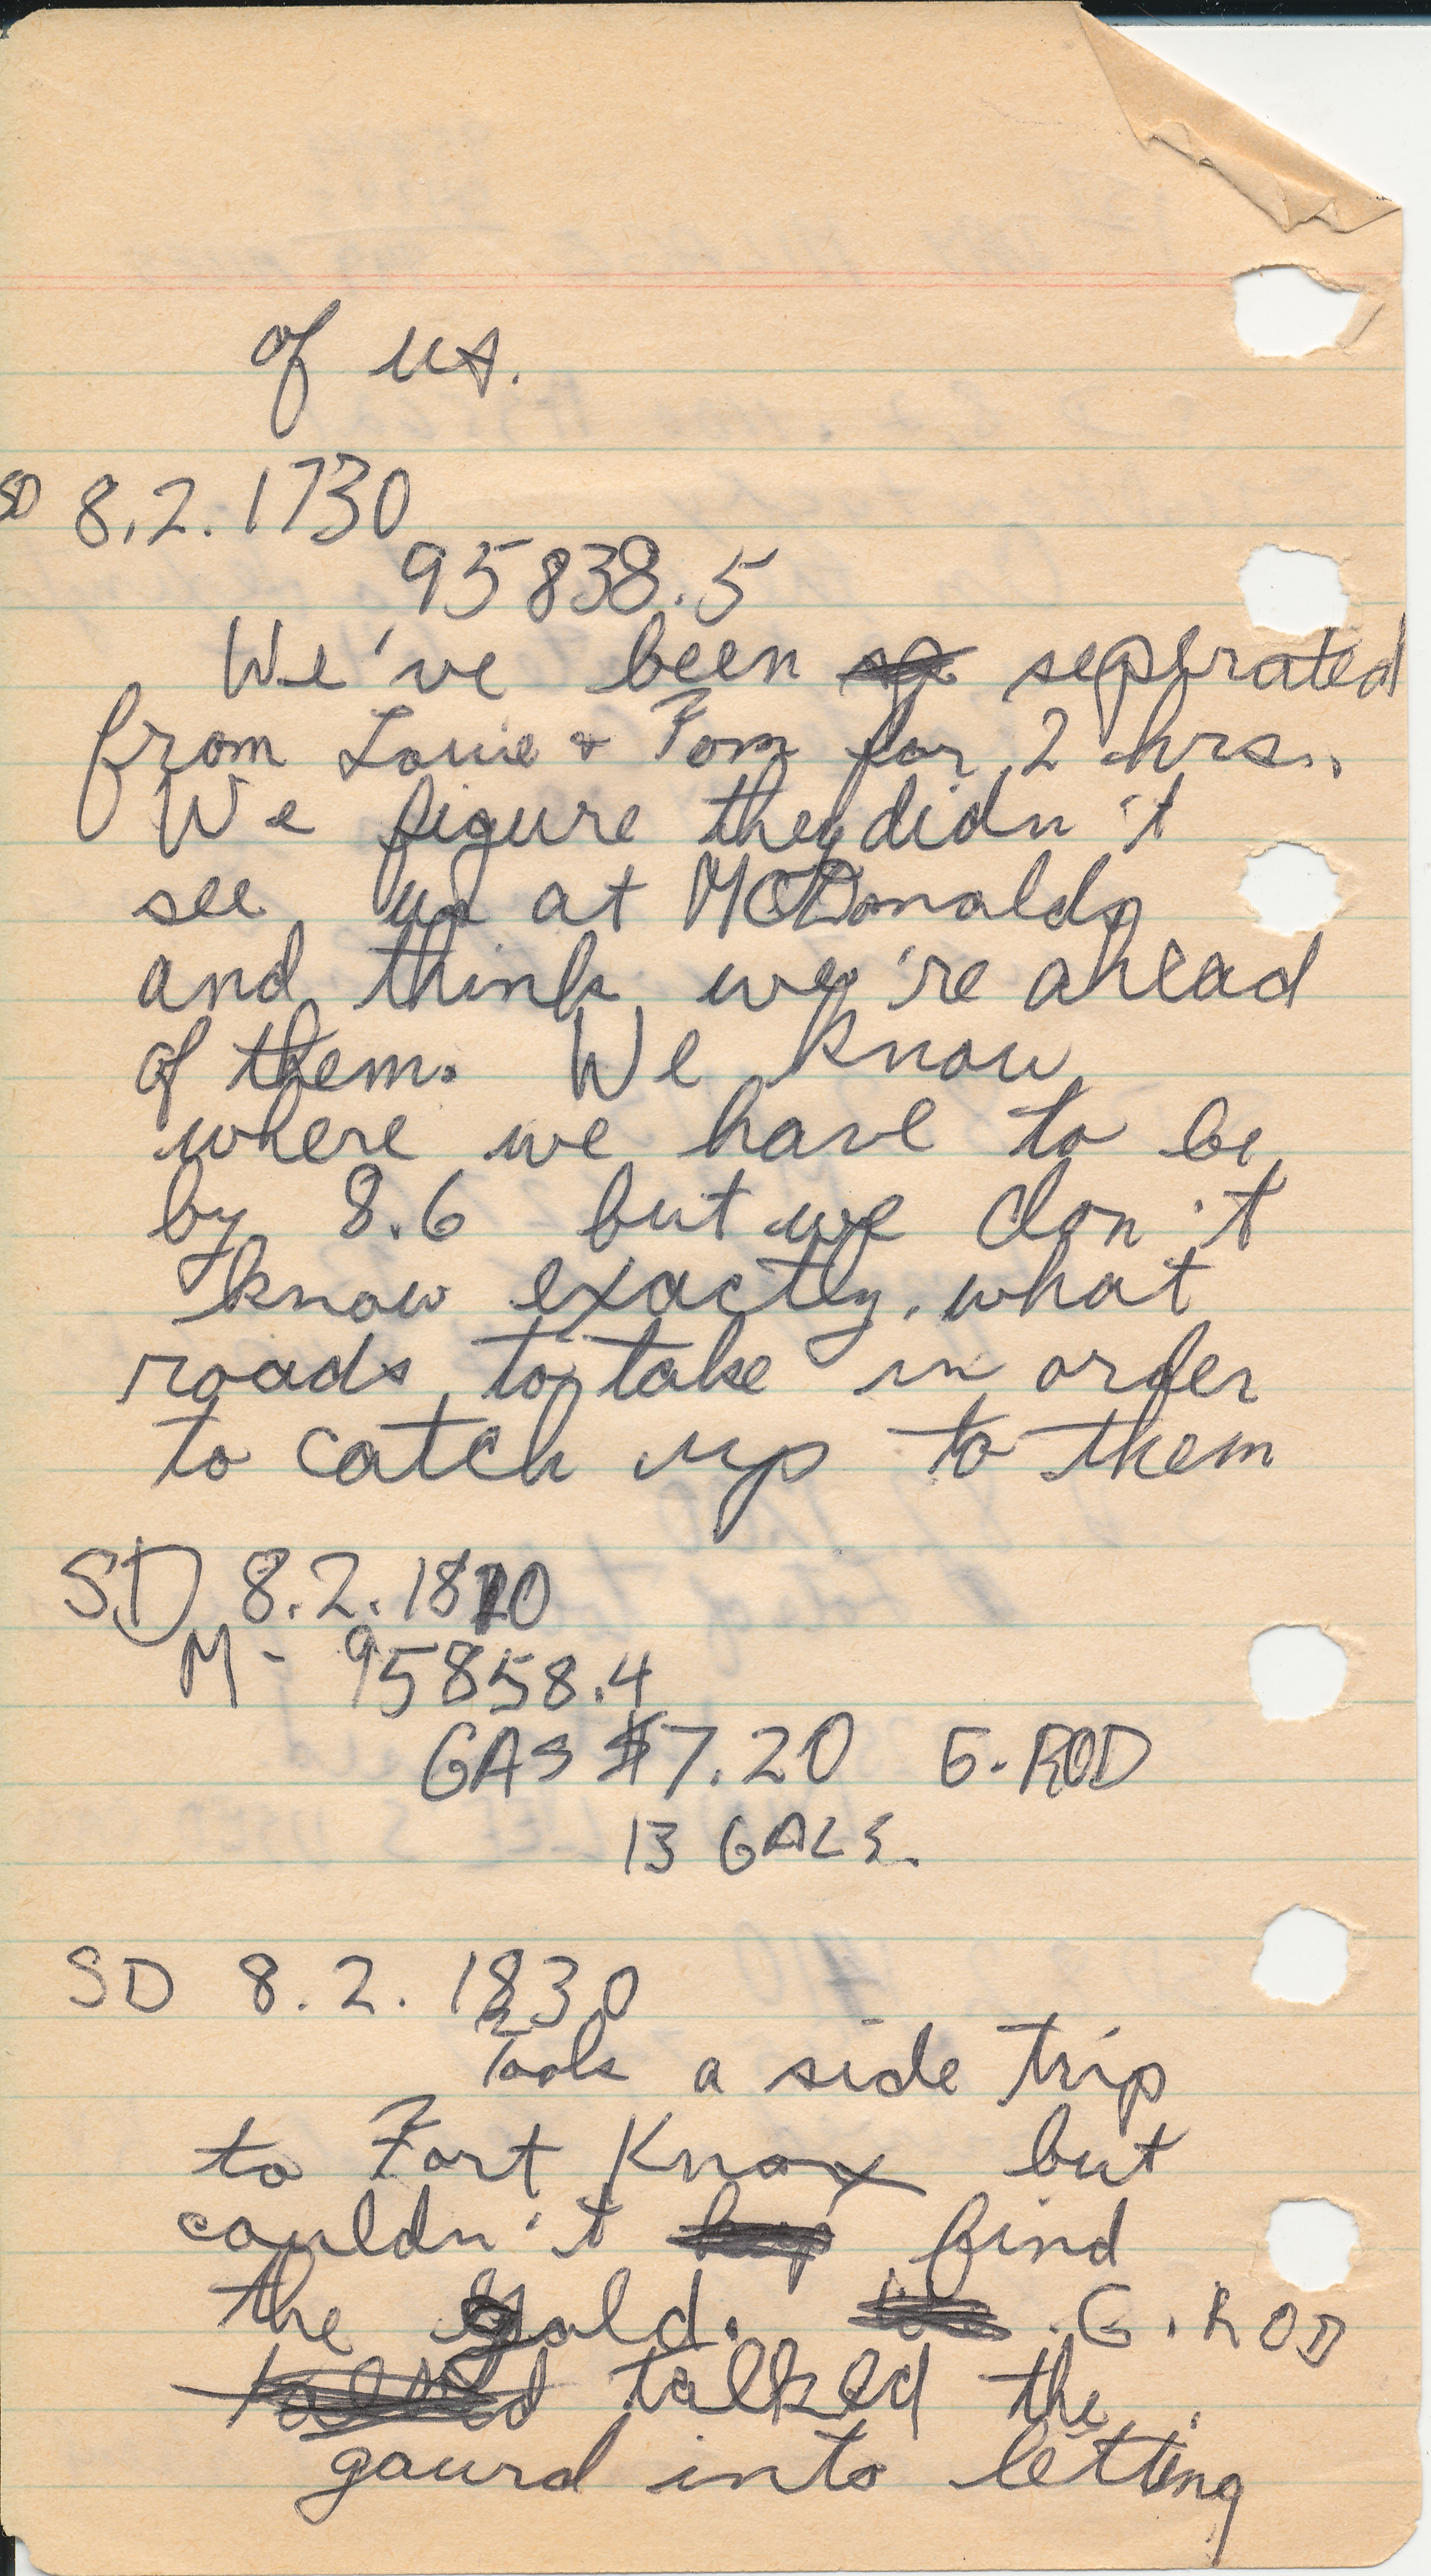 of us.
SD 8.2.1730
95838.5
We've been seperated
from Louie + Tom for 2 hrs.
We figure they didn't
see us at McDonalds
and think we're ahead
of them. We know
where we have to be
by 8.6 but we don't
know exactly what
roads to take in order
to catch up to them
SD 8.2.1820
M - 95858.4
GAS $7.20 G-ROD
13 GALS.
SD 8.2.1830
Took a side trip
to Fort Knox but
couldn't find
the gold. G.ROD
talked the
gaurd into letting